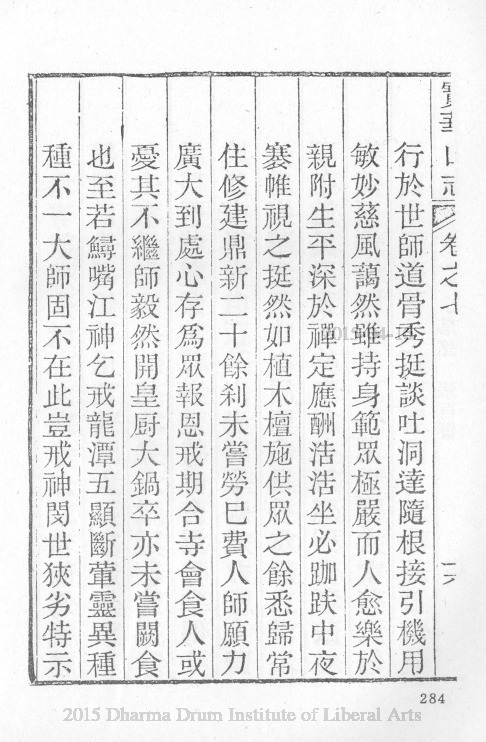 寶華山志
卷之七
行於世師道骨秀挺談吐洞達隨根接引機用
敏妙慈風藹然雖持身範眾極嚴而人愈樂於
親附生平深於禪定應酬浩浩坐必跏趺中夜
褰帷視之挺然如植木檀施供眾之餘悉歸常
住修建鼎新二十餘剎未嘗勞巳費人師願力
廣大到處心存為眾報恩戒期合寺會食人或
憂其不繼師毅然開皇厨大鍋卒亦未嘗闕食
也至若鱘嘴江神乞戒龍潭五顯斷葷靈異種
種不一大師固不在此豈戒神閔世狹劣特示
284
2015 Dharma Drum Institute of Liberal Arts